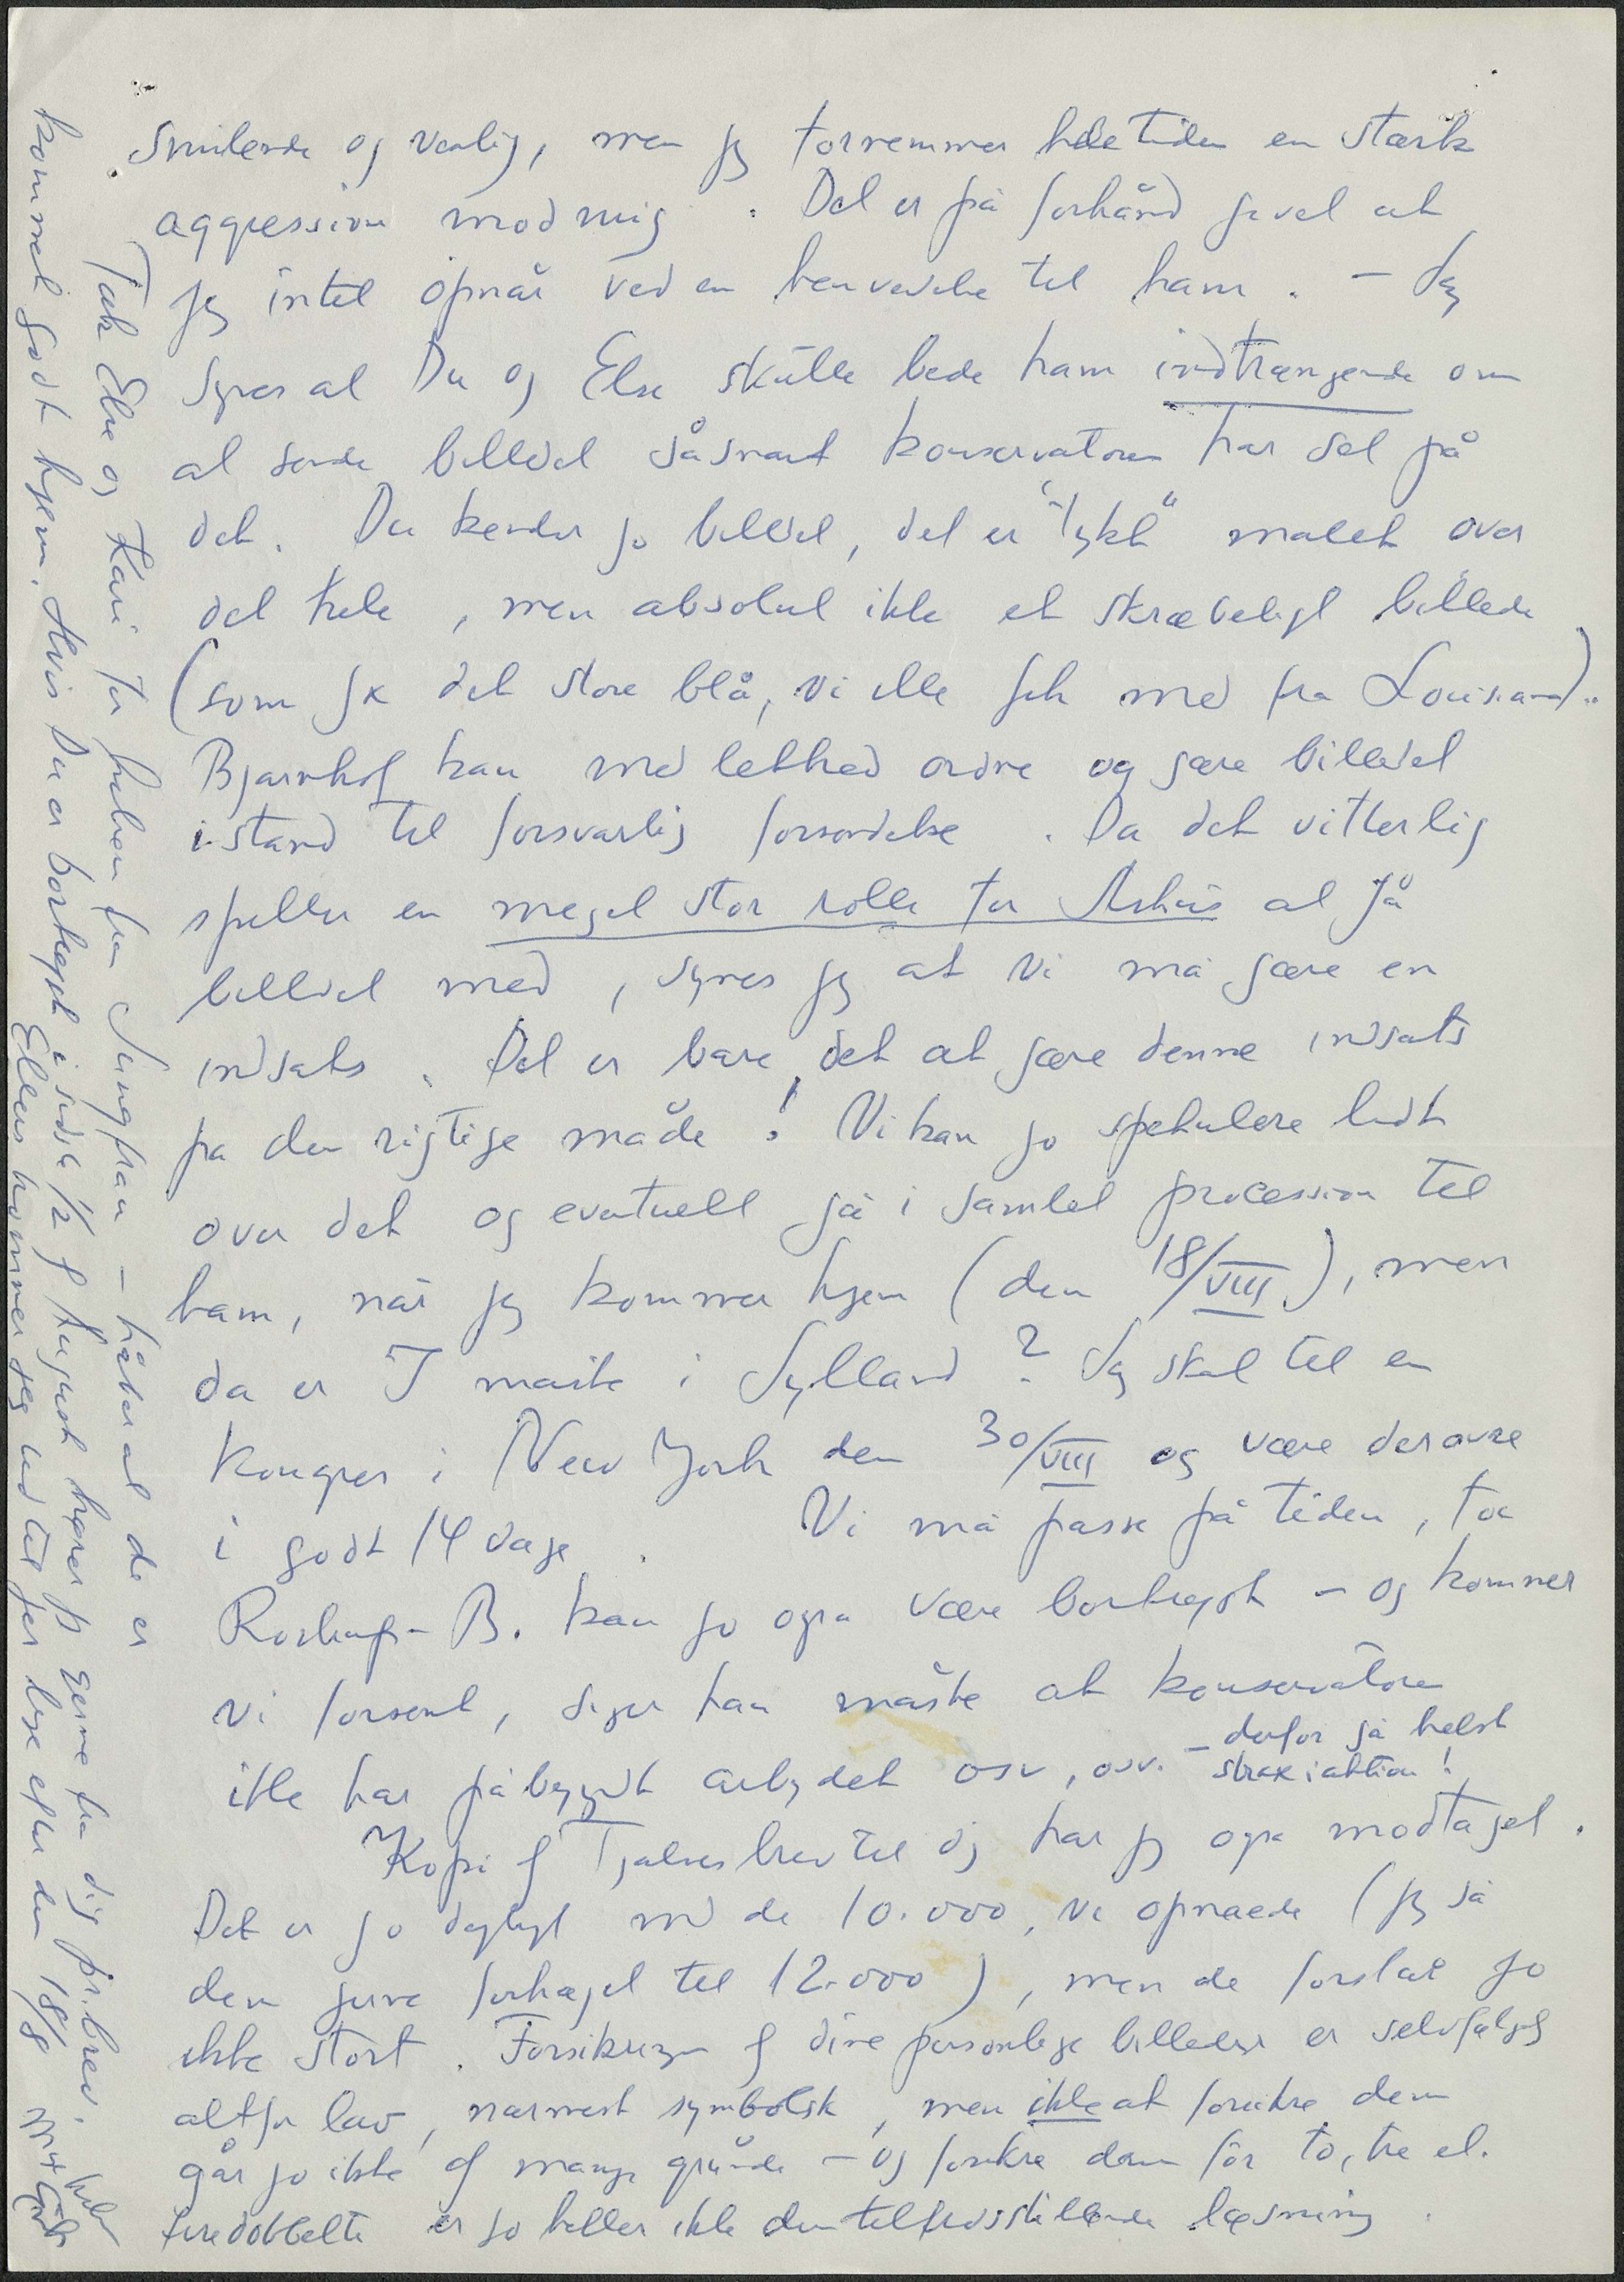 smilende og venlig, men jeg fornemmer hele tiden en stærk
aggression mod mig. Det er på forhånd givet at
jeg intet opnår ved en henvendelse til ham. – Jeg
synes at Du og Else skulle bede ham indtrængende om
at sende billedet såsnart konservatoren har set på
det. Du kender jo billedet, det er "tykt" malet over
det hele, men absolut ikke et skrøbeligt billede
(som fx det store blå, vi ikke fik med fra Louisiana)..
Bjørnhof kan med lethed ordne og gøre billedet
istand til forsvarlig forsendelse. Da det vitterlig
spiller en meget stor rolle for Århus at få
billedet med, synes jeg at vi må gøre en
indsats. Det er bare det at gøre denne indsats
på den rigtige måde! Vi kan jo spekulere lidt
over det og eventuelt gå i samlet procession til
ham, når jeg kommer hjem (den 18/VIII), men
da er I måske i Jylland? Jeg skal til en
Kongres i New York den 30/VIII og være derovre
i godt 14 dage. Vi må passe på tiden, for
Rostrup-B. kan jo også være bortrejst – og kommer
vi for sent, siger han måske at konservatoren
ikke har påbegyndt arbejdet osv, osv. – derfor så helst
strax i aktion!
Kopi af Tjalves brev til dig har jeg også modtaget.
Det er jo dejligt med de 10.000, vi opnåede (jeg så
dem gerne forhøjet til 12.000), men de forslår jo
ikke stort. Forsikringen af dine personlige billeder er selvfølgelig
alt for lav, nærmest symbolsk, men ikke at forsikre dem
går jo ikke af mange grunde – og forsikre dem for to, tre el.
firedobbelte er jo heller ikke den tilfredsstillende løsning.
Tak Else og Kari for hilsen fra Jungfrau – håber at de er
kommet godt hjem. Hvis Du er bortrejst i sidste 1/2 af August hører jeg gerne fra dig pr. brev.
Ellers kommer jeg ud til jer lige efter den 18/8